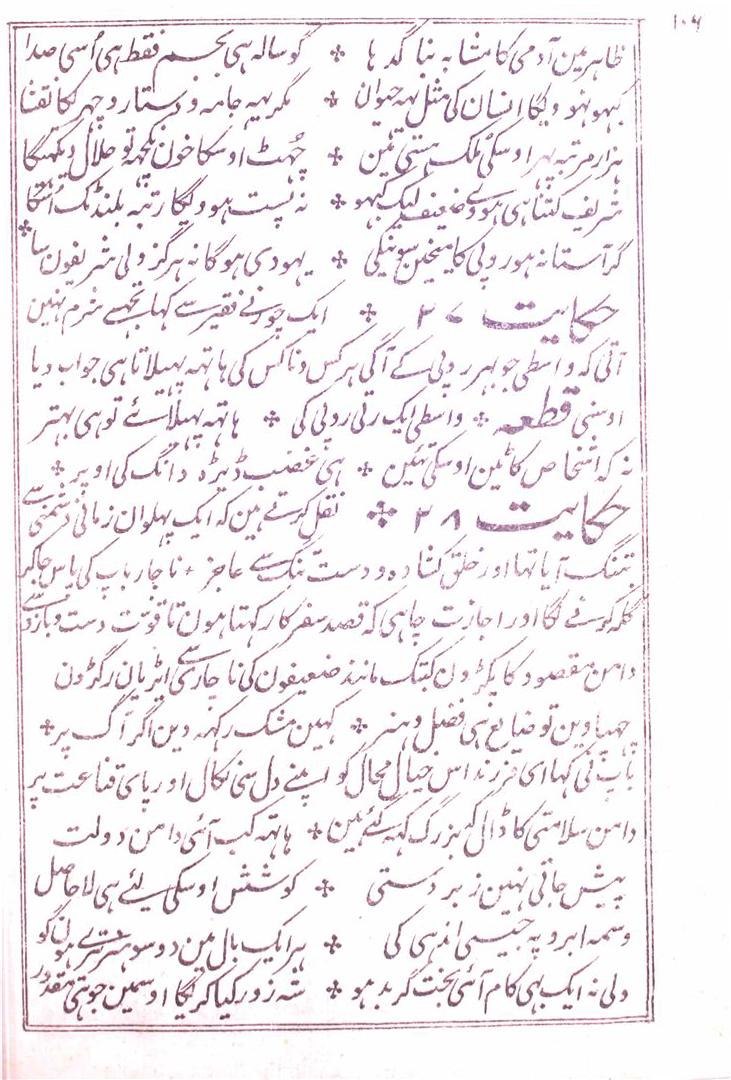 ۱۰۶
ظاہر مین آدمی کا مشابہ بنا گدہا ٭ گو سالہ ہی بجسم فقط ہی اُسی صدا
کبہو نہو ویگا انسان کی مثل یہہ حیوان ٭ مگر یہہ جامہ و دستار و چہر لگا نقشا
ہزار مرتبہ پہر اوسکی ملک ہستی تئین ٭ چہٹ اوسکا خون کچہہ تو حلال دیکہیگا
شریف کتنا ہی ہووے ضعیف لیک کبہو ٭ نہ پست ہوویگا رتبہ بلند تک اُسکا
گر آستانہ ہو روپی کا میخین سونیکی ٭ یہودی ہوگا نہ ہرگز ولی شریفون سا ٭
حکایت ۲۷ ٭ ایک چور نے فقیر سے کہا تجہے شرم نہین
آتی کہ واسطی جو بہر روپی کے آگی ہر کس و ناکس کی ہاتہہ پہیلاتا ہی جواب دیا
اوسنی قطعہ ٭ واسطی ایک رتی روپی کی ٭ ہاتہہ پہیلائے تو ہی بہتر
نہ کہ اشخاص کاٹین اوسکی تئین ٭ ہی غضب ڈیڑہ دانگ کی اوپر ٭
حکایت ۲۸ ٭ نقل کرتے ہین کہ ایک پہلوان زمانی دشمنی سے
بتنگ آیا تہا اور خلق کشادہ و دست تنگ سے عاجز ٭ ناچار باپ کی پاس جاکر
گلہ کرنے لگا اور اجازت چاہی کہ قصد سفر کا رکہتا ہون تا قوت دست و بازو سے
دامن مقصود کا پکڑون کبتک مانند ضعیفون کی ناچاری سے ایڑیان رگڑون
چہپاوین تو ضایع ہی فضل و ہنر ٭ کہین مشک رکہہ دین اگر آگ پر ٭
باپ نی کہا ای فرزند اس خیال محال کو اپنے دل سی نکال اور پای قناعت پر
دامن سلامتی کا ڈال کہ بزرگ کہہ گئے ہین ٭ ہاتہہ کب آئی دامن دولت
پیش جاتی نہین زبردستی ٭ کوشش اوسکی لئے ہی لاحاصل
وسمہ ابرو پہ جیسی اندہی کی ٭ ہر ایک بال مین دو سو ہنر تیرے ہون گو
ولی نہ ایک بہی کام آئی بخت گر بد ہو ٭ شہ زور کیا کریگا اوسمین جو ہی مقدور